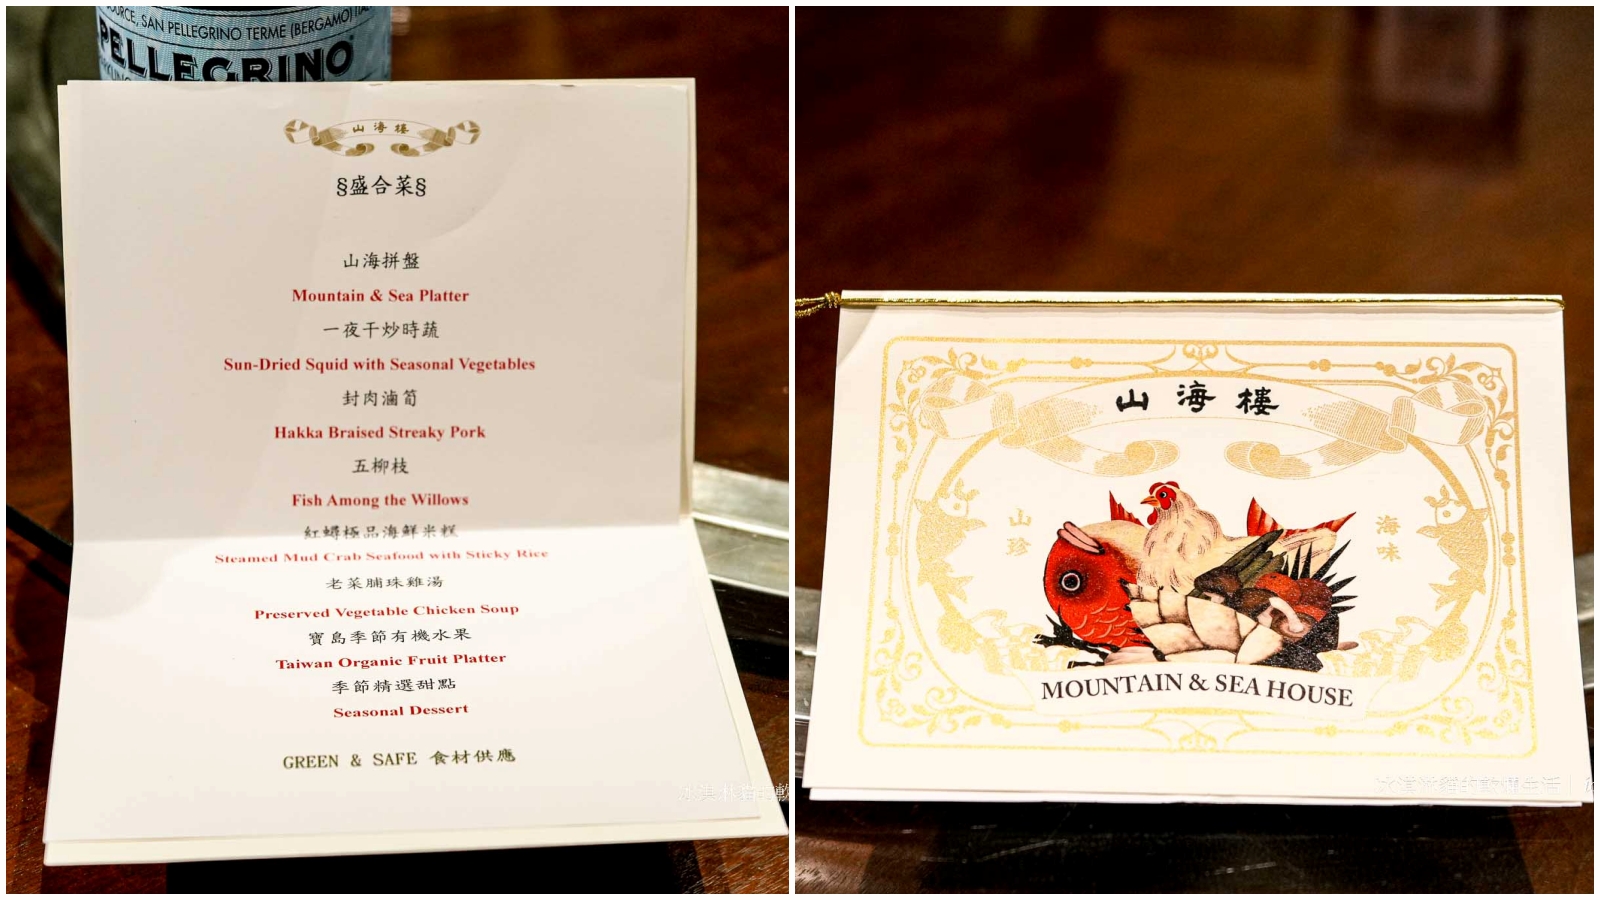 SOURCE, SAN PELLEGRINO TERME (BERGAMO)
PELLEGRINO
山海樓
§盛合菜§
山海拼盤
Mountain & Sea Platter
一夜干炒時蔬
Sun-Dried Squid with Seasonal Vegetables
封肉滷筍
Hakka Braised Streaky Pork
五柳枝
Fish Among the Willows
紅蟳極品海鮮米糕
Steamed Mud Crab Seafood with Sticky Rice
老菜脯珠雞湯
Preserved Vegetable Chicken Soup
寶島季節有機水果
Taiwan Organic Fruit Platter
季節精選甜點
Seasonal Dessert
GREEN & SAFE 食材供應
山海樓
山珍
海味
MOUNTAIN & SEA HOUSE